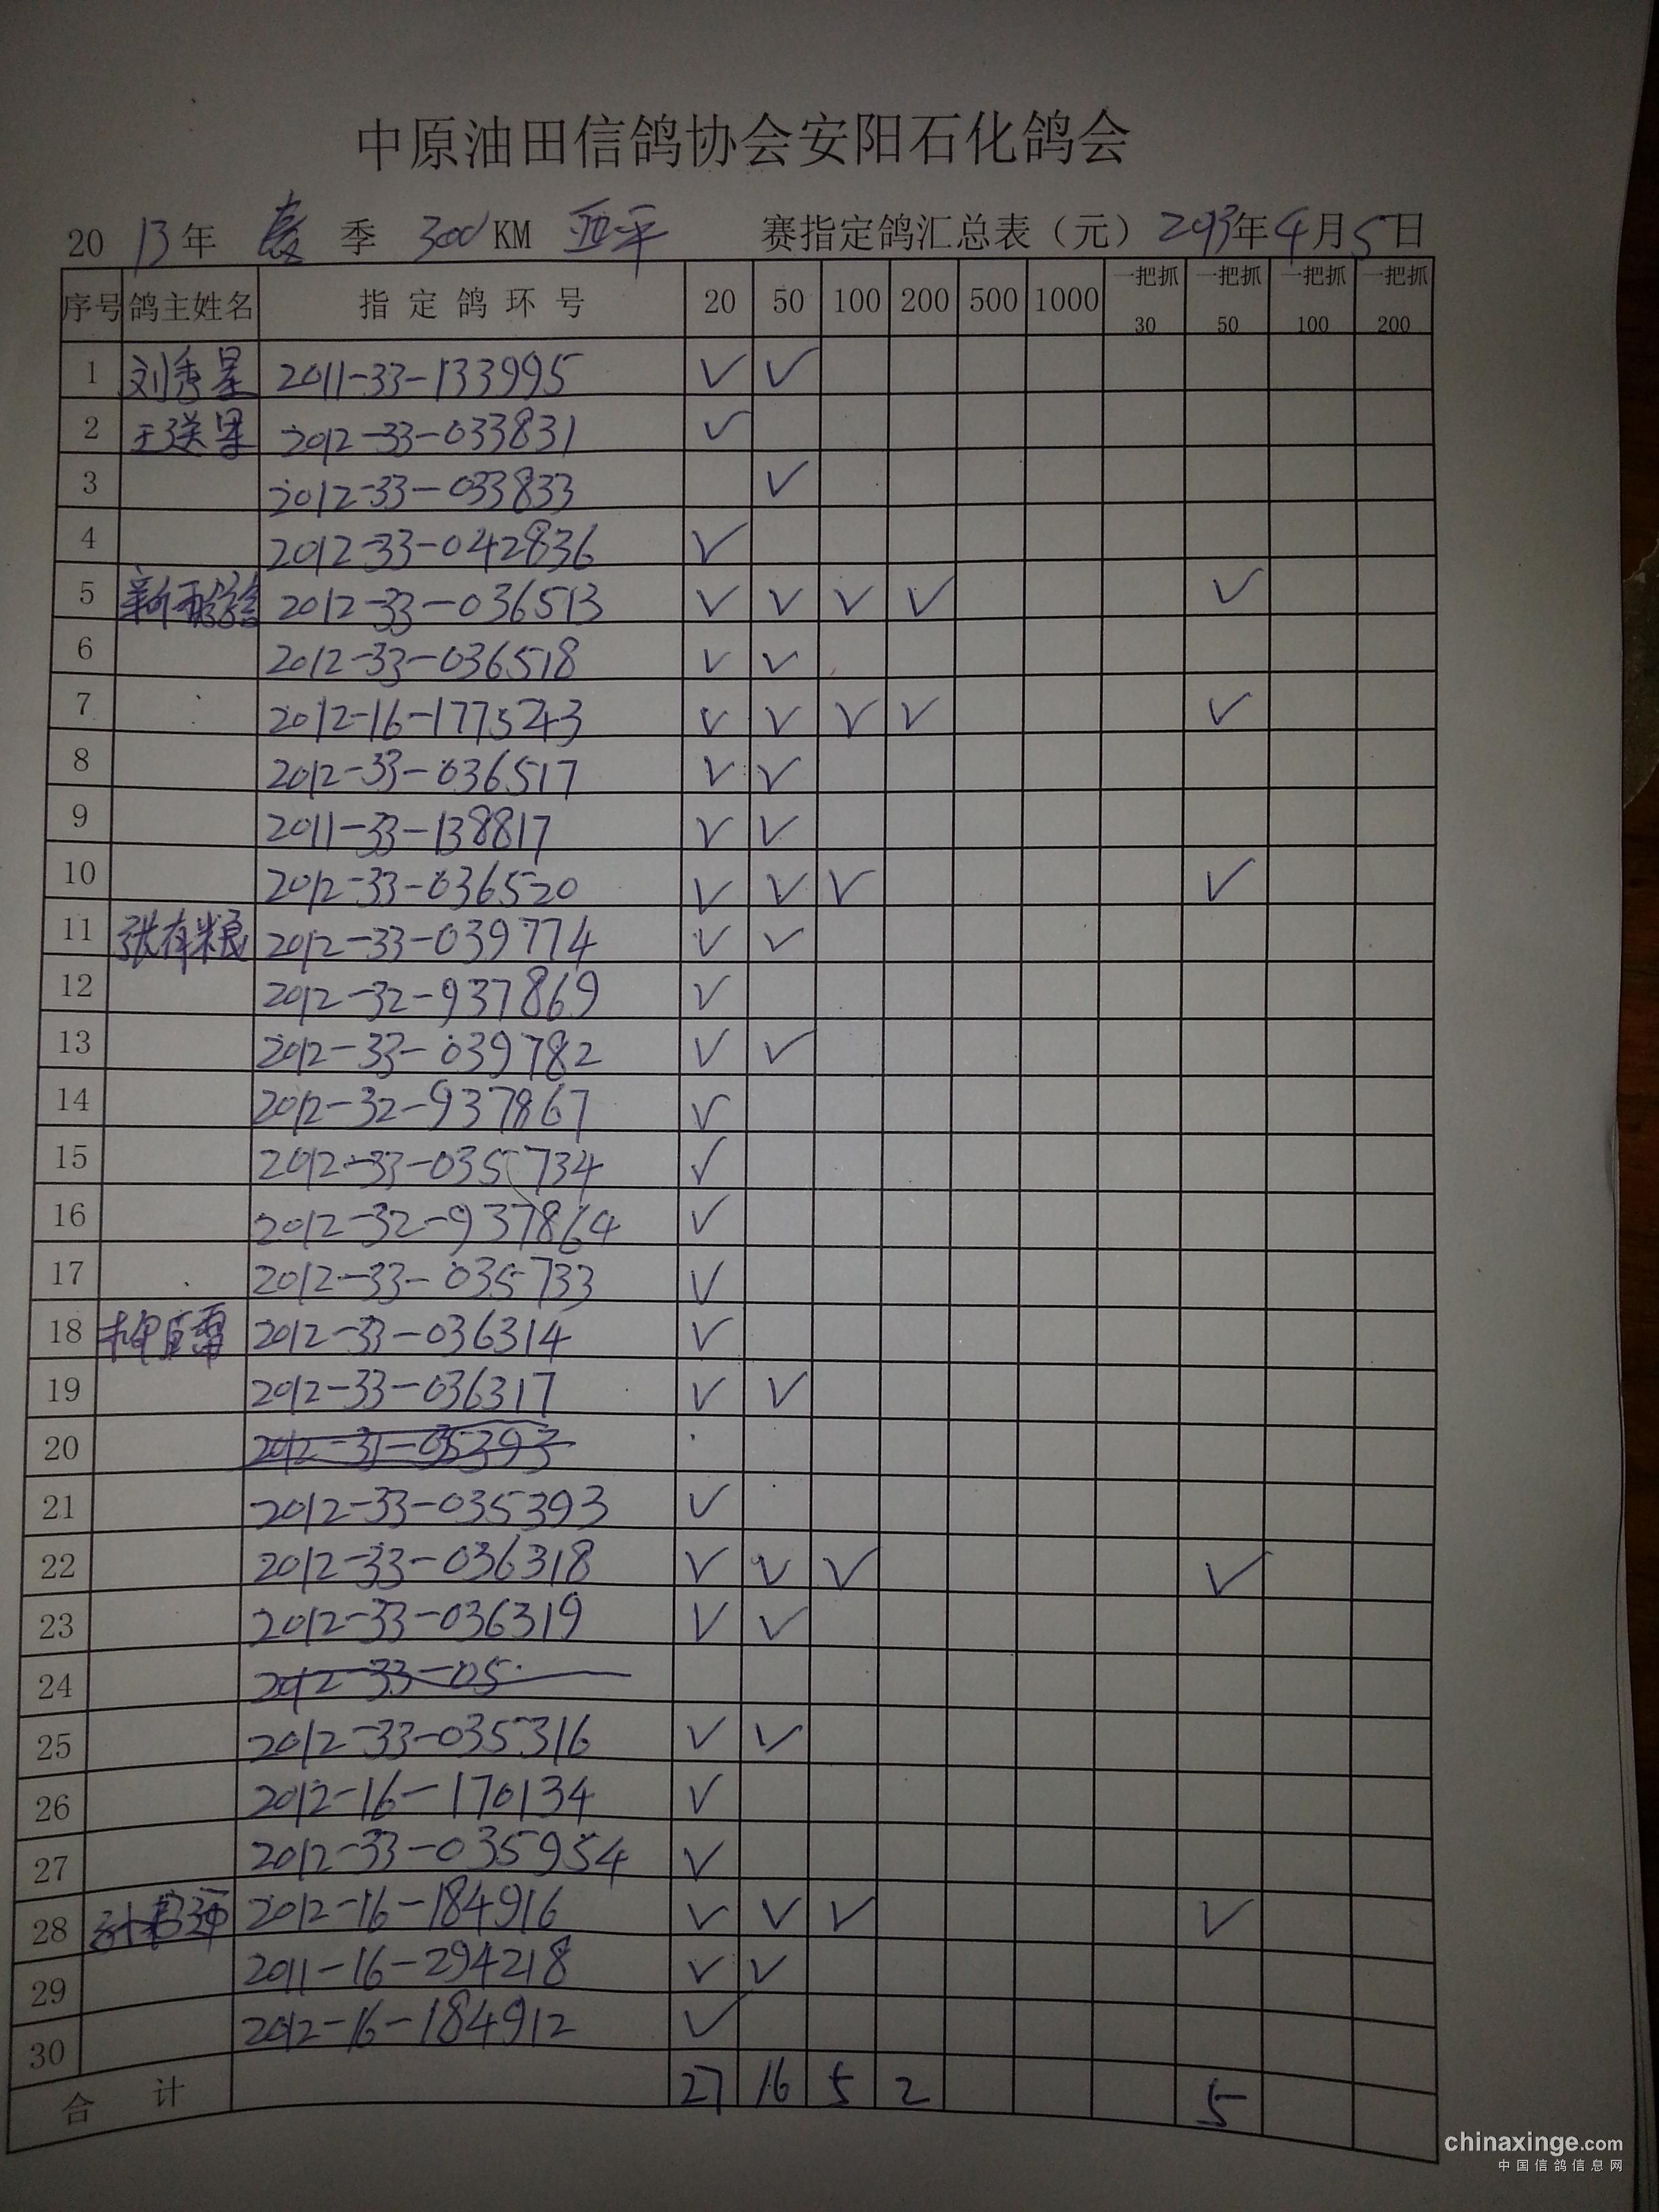 中原油田信鸽协会安阳石化鸽会
20 13年 季 300 KM 西平 赛指定鸽汇总表（元）2013年4月5日
序号 鸽主姓名 指定鸽环号 20 50 100 200 500 1000 一把抓30 一把抓50 一把抓100 一把抓200
1 刘秀星 2011-33-133995 ✓ ✓
2 王 2012-33-033831 ✓
3 2012-33-033833 ✓
4 2012-33-042836 ✓
5 2012-33-036513 ✓ ✓ ✓ ✓ ✓
6 2012-33-036518 ✓ ✓
7 2012-16-177543 ✓ ✓ ✓ ✓ ✓
8 2012-33-036517 ✓ ✓
9 2011-33-138817 ✓ ✓
10 2012-33-036520 ✓ ✓ ✓ ✓
11 张有粮 2012-33-039774 ✓ ✓
12 2012-32-937869 ✓
13 2012-33-039782 ✓ ✓
14 2012-32-937867 ✓
15 2012-33-035734 ✓
16 2012-32-937864 ✓
17 2012-33-035733 ✓
18 2012-33-036314 ✓
19 2012-33-036317 ✓ ✓
20
21 2012-33-035393 ✓
22 2012-33-036318 ✓ ✓ ✓ ✓
23 2012-33-036319 ✓ ✓
24 2012-33-05
25 2012-33-035316 ✓ ✓
26 2012-16-170134 ✓
27 2012-33-035954 ✓
28 2012-16-184916 ✓ ✓ ✓ ✓
29 2011-16-294218 ✓ ✓
30 2012-16-184912 ✓
合计 27 16 5 2 5
chinaxinge.com
中国信鸽信息网